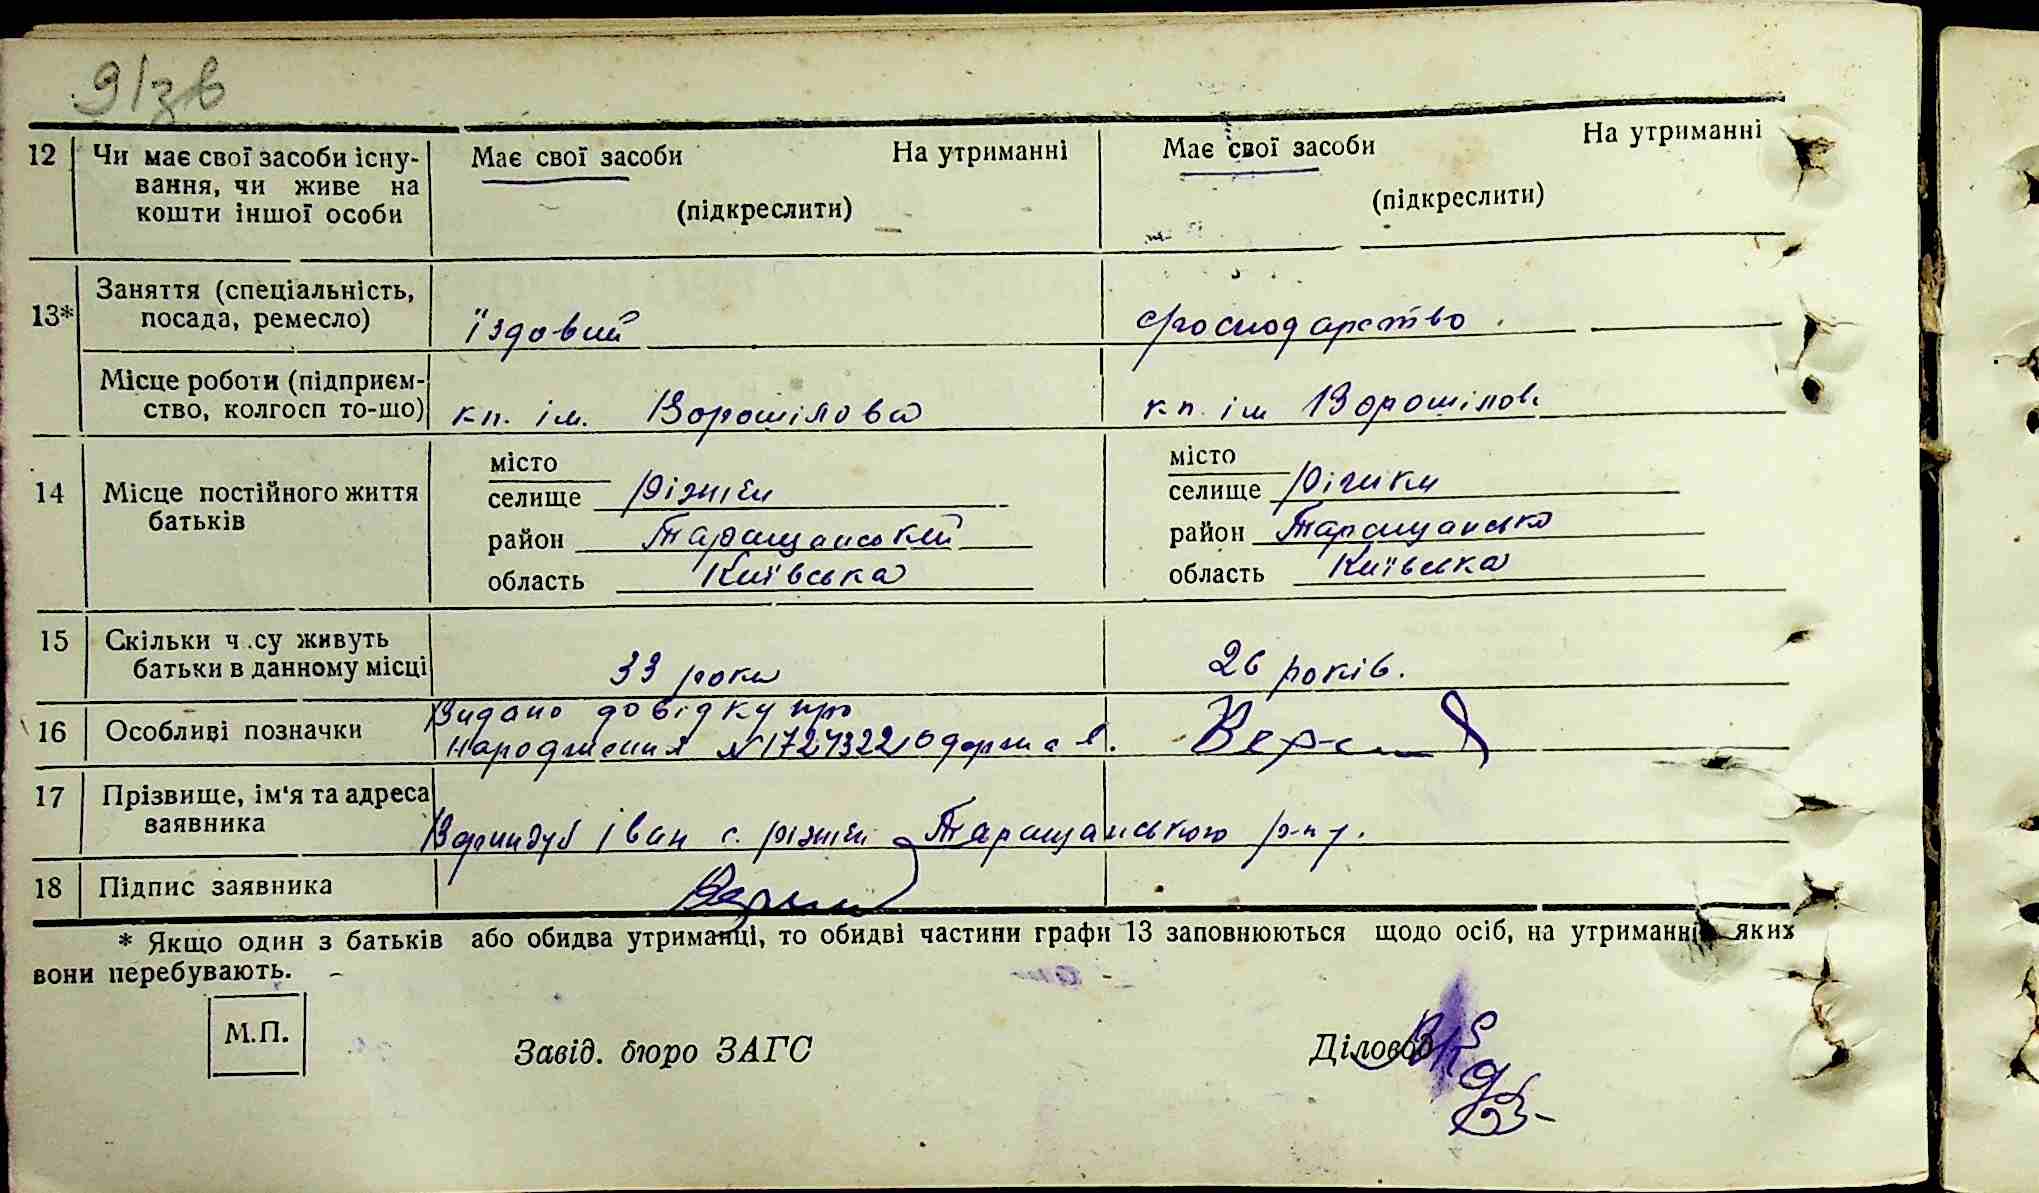 9/зв
12 Чи має свої засоби існу- Має свої засоби На утриманні Має свої засоби На утриманні
вання, чи живе на (підкреслити) (підкреслити)
кошти іншої особи
13* Заняття (спеціальність, посада, ремесло) їздовий господарство
Місце роботи (підприєм- кп. ім. Ворошілова кп. ім Ворошілов
ство, колгосп то-що)
14 Місце постійного життя батьків
місто місто
селище селище
район Таращанський район Таращансько
область Київська область Київська
15 Скільки ч.су живуть
батьки в данному місці 33 роки 26 років.
16 Особливі позначки Видано довідку про
народження №1724322 одержав.
17 Прізвище, ім'я та адреса
заявника Іван с. Таращанського р-ну.
18 Підпис заявника
* Якщо один з батьків або обидва утриманці, то обидві частини графи 13 заповнюються щодо осіб, на утриманні яких
вони перебувають.
М.П. Завід. бюро ЗАГС Діловод